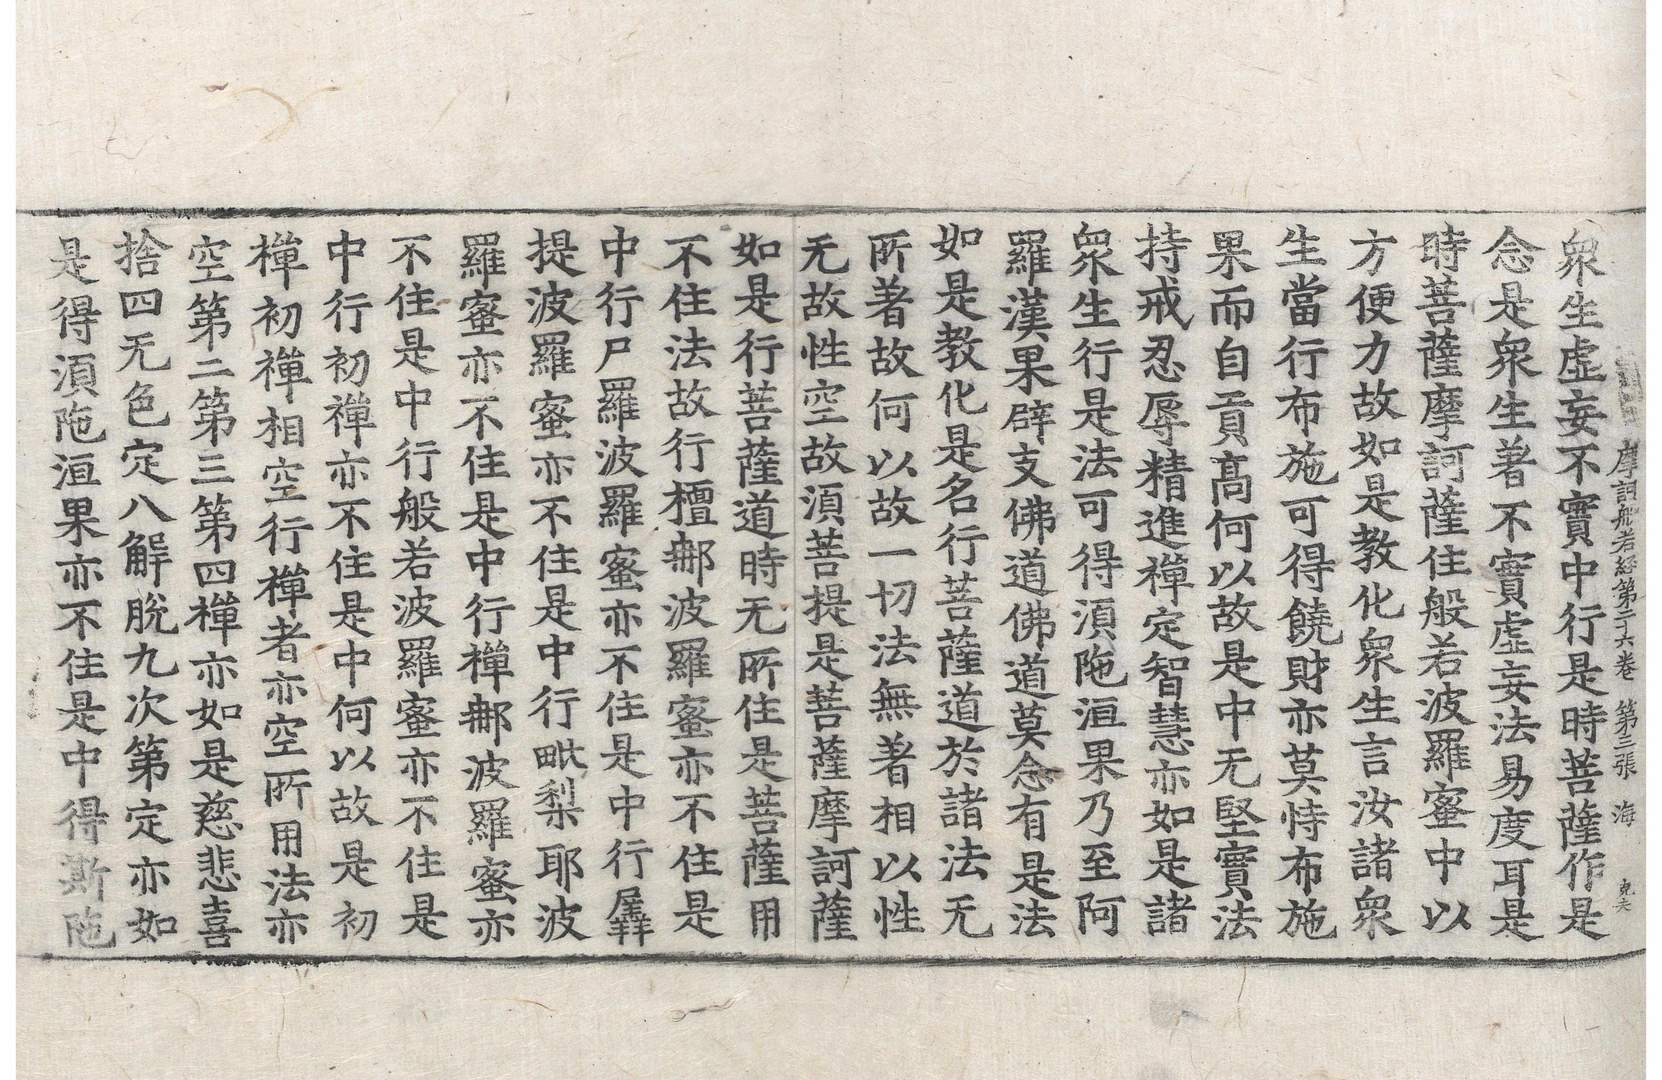 摩訶般若経第二十六卷　第三張　海　克夫
衆生虛妄不實中行是時菩薩作是
念是衆生著不實虛妄法易度耳是
時菩薩摩訶薩住般若波羅蜜中以
方便力故如是教化衆生言汝諸衆
生當行布施可得饒財亦莫恃布施
果而自貢高何以故是中无堅實法
持戒忍辱精進禪定智慧亦如是諸
衆生行是法可得須陁洹果乃至阿
羅漢果辟支佛道佛道莫念有是法
如是教化是名行菩薩道於諸法无
所著故何以故一切法無著相以性
无故性空故須菩提是菩薩摩訶薩
如是行菩薩道時无所住是菩薩用
不住法故行檀𨚗波羅蜜亦不住是
中行尸羅波羅蜜亦不住是中行羼
提波羅蜜亦不住是中行毗梨耶波
羅蜜亦不住是中行禪𨚗波羅蜜亦
不住是中行般若波羅蜜亦不住是
中行初禪亦不住是中何以故是初
禪初禪相空行禪者亦空所用法亦
空第二第三第四禪亦如是慈悲喜
捨四无色定八解脫九次第定亦如
是得須陁洹果亦不住是中得斯陁